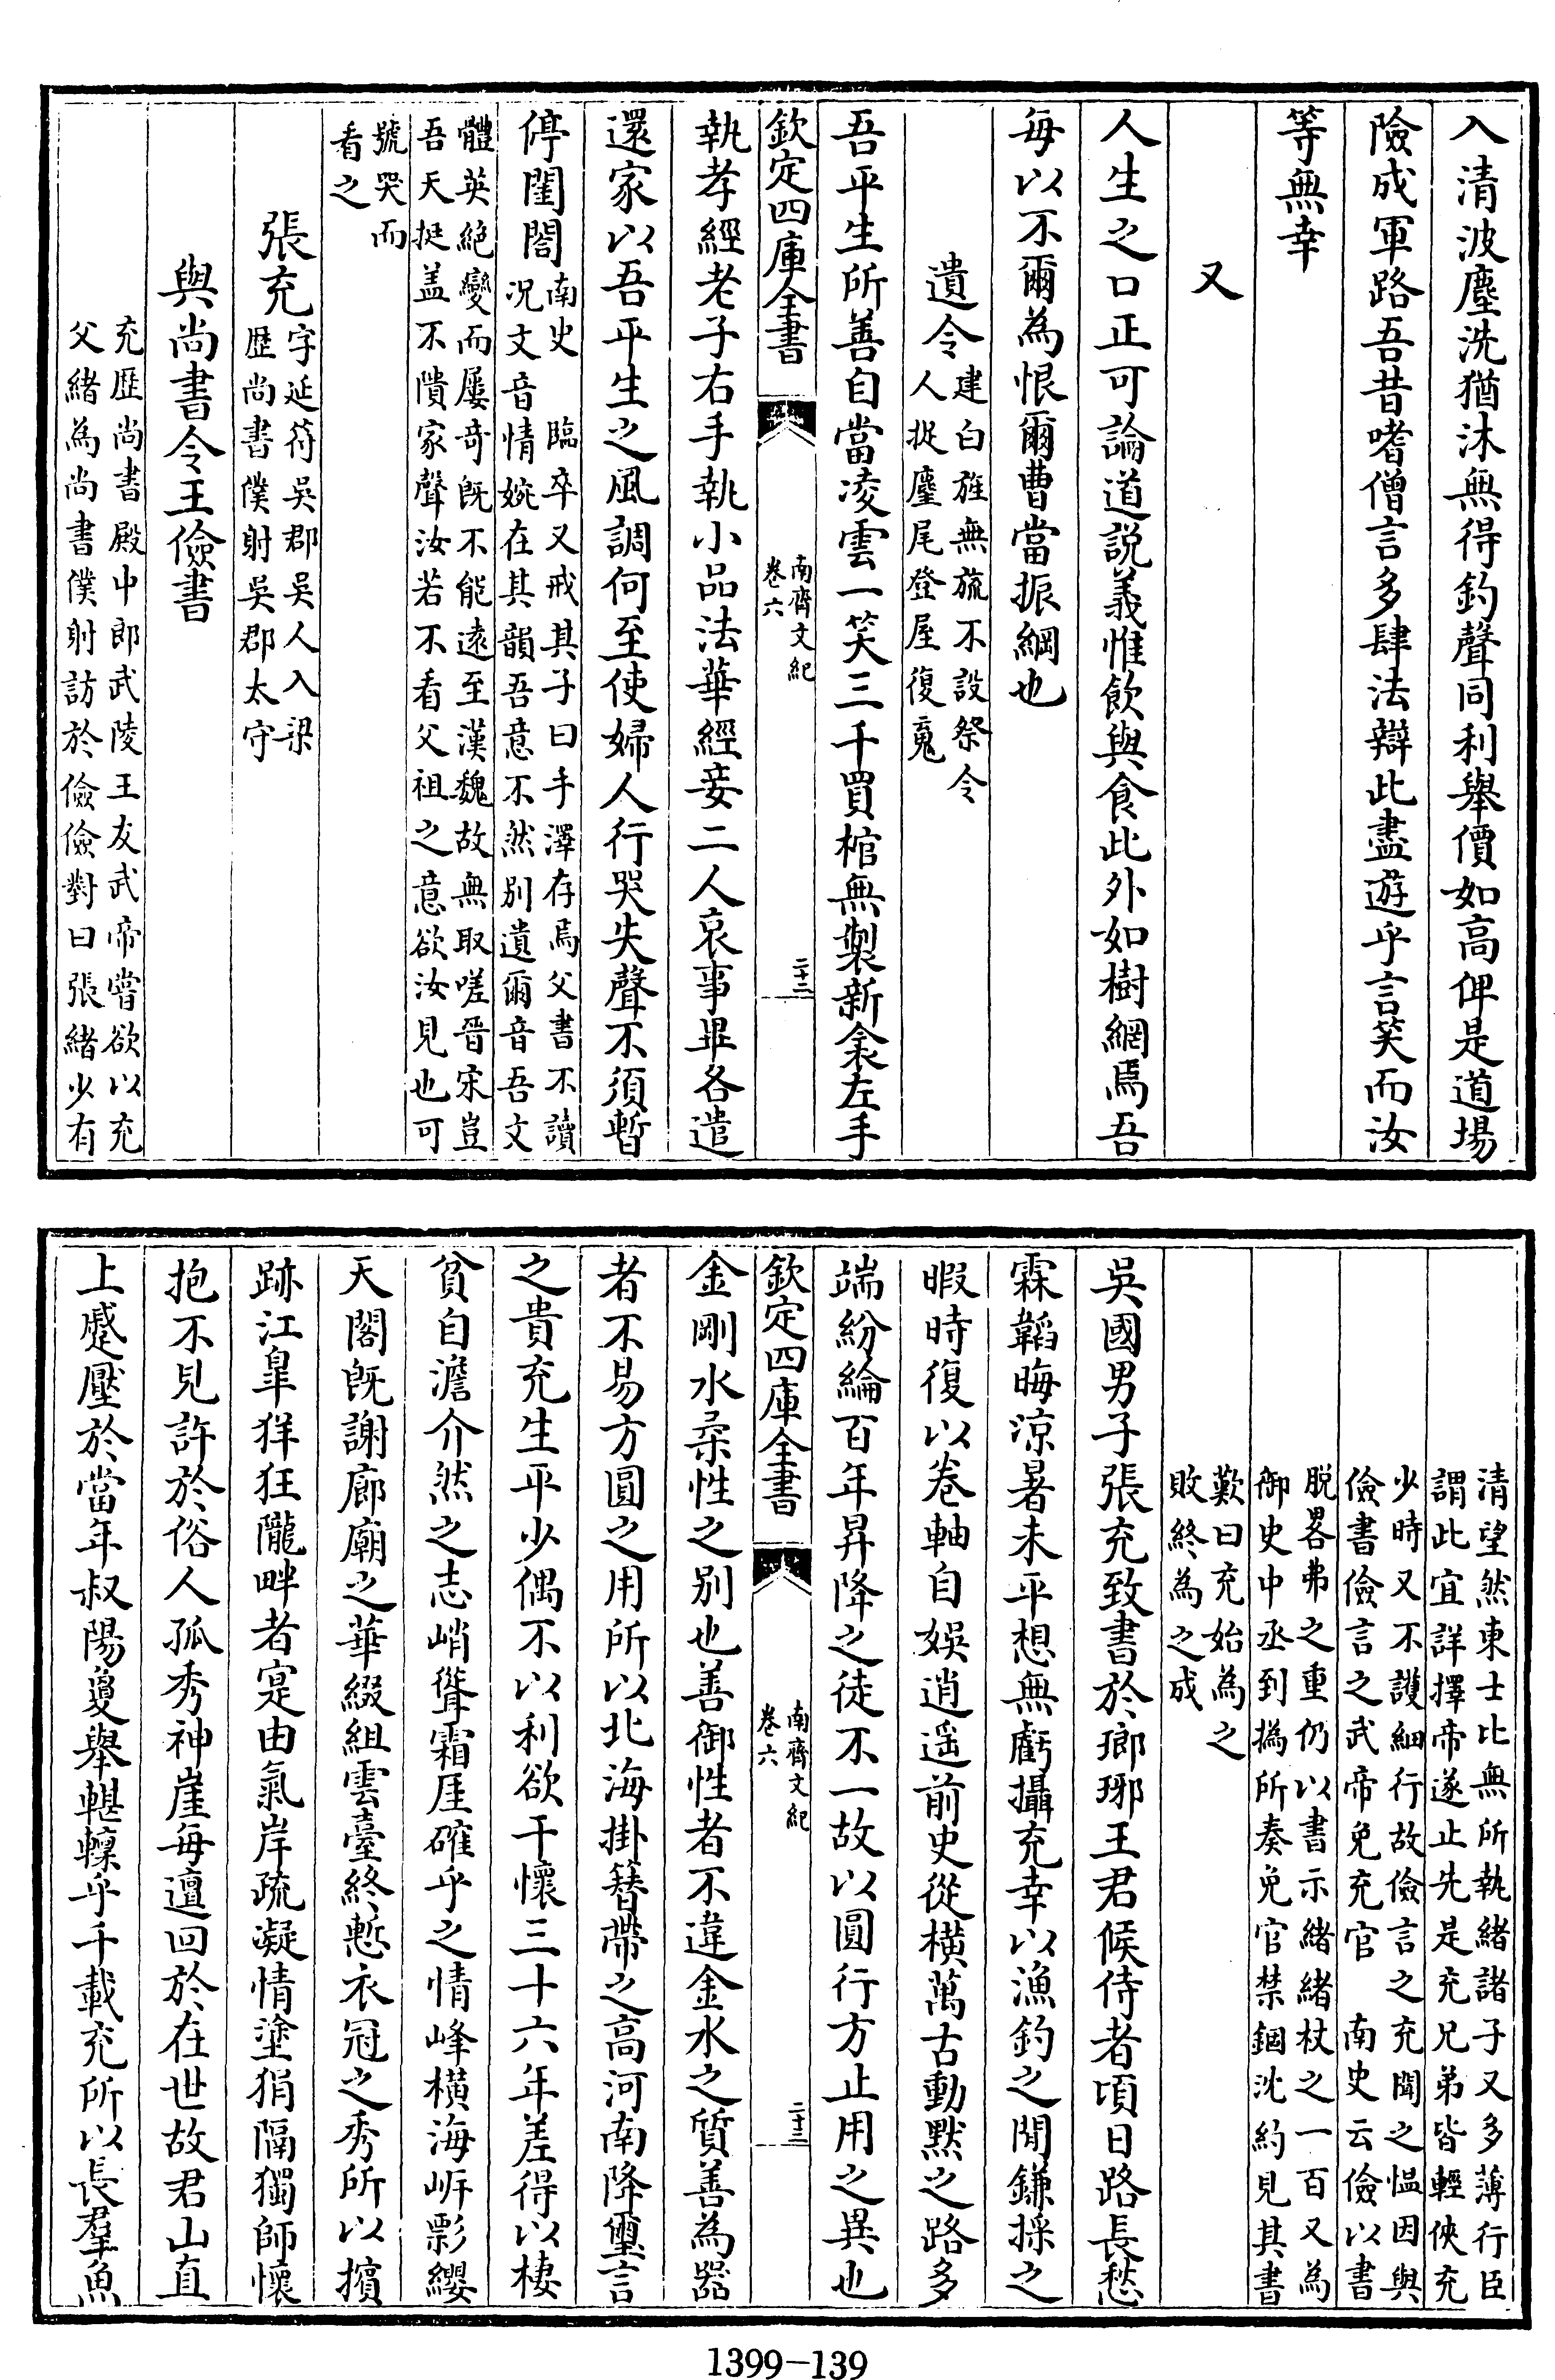 入清波塵洗猶沐無得釣聲同利舉價如高俾是道場
險成軍路吾昔嗜僧言多肆法辯此盡遊乎言笑而汝
等無幸
又
人生之口正可論道説義惟飲與食此外如樹網焉吾
每以不爾為恨爾曹當振綱也
遺令
建白旌無旒不設祭令
人捉麈尾登屋復䰟
吾平生所善自當凌雲一笑三千買棺無製新衾左手
欽定四庫全書
南齊文紀
卷六
二十二
執孝經老子右手執小品法華經妾二人哀事畢各遣
還家以吾平生之風調何至使婦人行哭失聲不須暫
停閨閤
南史 臨卒又戒其子曰手澤存焉父書不讀
况文音情婉在其韻吾意不然别遺爾音吾文
體英絶變而屢竒既不能逺至漢魏故無取嗟晉宋豈
吾天挺盖不隤家聲汝若不看父祖之意欲汝見也可
號哭而
看之
張充
字延符吳郡吳人入梁
歴尚書僕射吳郡太守
與尚書令王儉書
充歴尚書殿中郎武陵王友武帝嘗欲以充
父緒為尚書僕射訪於儉儉對曰張緒少有
清望然東士比無所執緒諸子又多薄行臣
謂此宜詳擇帝遂止先是充兄弟皆輕俠充
少時又不護細行故儉言之充聞之愠因與
儉書儉言之武帝免充官 南史云儉以書
脱畧弗之重仍以書示緒緒杖之一百又為
御史中丞到撝所奏免官禁錮沈約見其書
歎曰充始為之
敗終為之成
吳國男子張充致書於瑯琊王君候侍者頃日路長愁
霖韜晦涼暑未平想無虧攝充幸以漁釣之閒鎌採之
暇時復以卷軸自娛逍遥前史從横萬古動默之路多
端紛綸百年昇降之徒不一故以圓行方止用之異也
欽定四庫全書
南齊文紀
卷六
二十三
金剛水柔性之别也善御性者不違金水之質善為器
者不易方圓之用所以北海掛簪帶之高河南降璽言
之貴充生平少偶不以利欲干懷三十六年差得以棲
貧自澹介然之志峭聳霜厓確乎之情峰横海岍影纓
天閣既謝廊廟之華綴組雲臺終慙衣冠之秀所以擯
跡江臯佯狂隴畔者寔由氣岸疏凝情塗狷隔獨師懷
抱不見許於俗人孤秀神崖每邅回於在世故君山直
上蹙壓於當年叔陽敻舉轗轗乎千載充所以長羣魚
1399-139